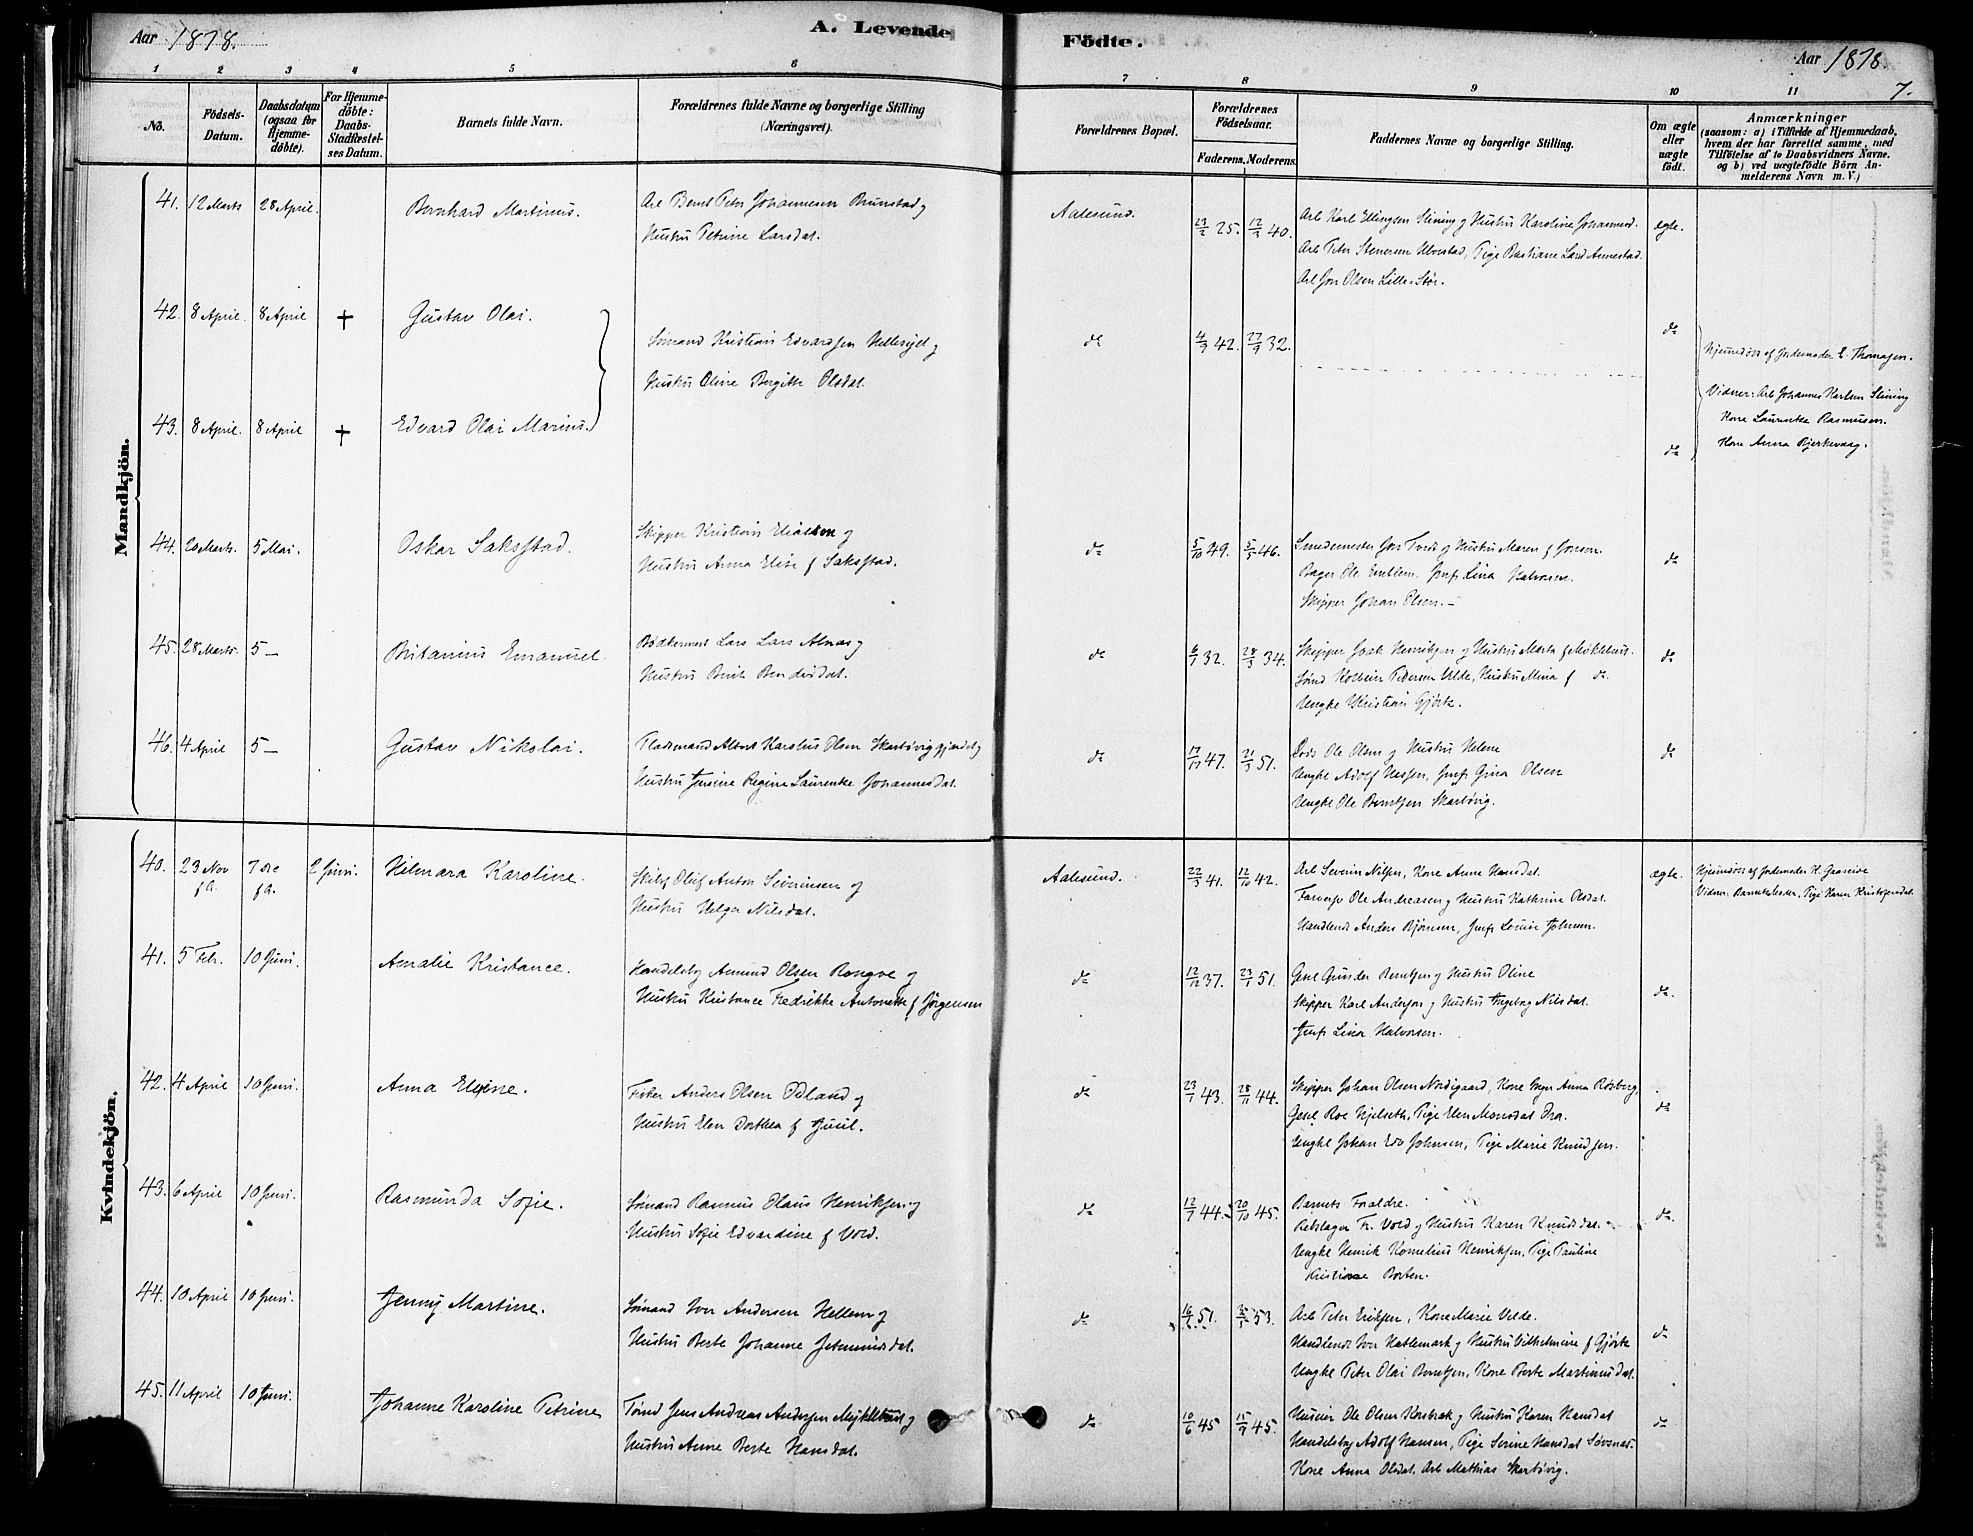 Aar 1878.
A. Levende Födte.
Aar 1878.
7.
1 2 3 4 5 6 7 8 9 10 11
No.
Födsels-Datum.
Daabsdatum (ogsaa for Hjemme-döbte).
For Hjemme-döbte: Daabs-Stadfæstel-ses Datum.
Barnets fulde Navn.
Forældrenes fulde Navne og borgerlige Stilling (Næringsvei).
Forældrenes Bopæl.
Forældrenes Födselsaar.
Faderens. Moderens.
Faddernes Navne og borgerlige Stilling.
Om ægte eller uægte födt.
Anmærkninger
(saasom: a) i Tilfælde af Hjemmedaab, hvem der har forrettet samme, med Tilföielse af to Daabsvidners Navne. og b) ved uægtefödte Börn An-melderens Navn m. V.)
Mandkjön.
41. 12 Marts 28 April. Bernhard Martinus.
Arb Bernt Peter Johannesen Brunstad og
Hustru Petrine Larsdat.
Aalesund. 23/2 25. 12/3 40.
Arb Karl Ellingsen Slining og Hustru Karoline Johannesd.
Arb Peter Stenersen Ulvestad, Pige Bastiane Larsd Annestad.
Arb Jon Olsen Lille-Stör.
ægte.
42. 8 April. 8 April + Gustav Olai.
Sömand Kristian Edvardsen Hellesylt og
Hustru Oline Bergitte Olsdat.
do 4/9 42. 27/9 32. do
Hjemmedöbt af Jordemoder E. Thomasen.
Vidner: Arb Johannes Karlsen Slining
Kone Laurentse Rasmussen.
Kone Anna Bjerkevaag.
43. 8 April. 8 April + Edvard Olai Marius.
do
44. 20 Marts. 5 Mai. Oskar Saksstad.
Skipper Kristian Eliassen og
Hustru Anna Elise f Saksstad.
do 5/10 49. 5/5 46.
Smedemester Jon Tveds og Hustru Maren f Jonsen.
Bager Ole Emblem, Jmfr Lina Halvorsen.
Skipper Johan Olsen.
do
45. 28 Marts. 5 — Britanius Emanuel.
Bödkermest Lars Lars Alnæs og
Hustru Berit Bendixdat.
do 6/1 32. 28/3 34.
Skipper Isak Henriksen og Hustru Marta f Möklebust.
Sömd Kolbein Pedersen Velde, Hustru Mina f do.
Ungke Kristian Gjörtz.
do
46. 4 April 5 — Gustav Nikolai.
Pladsmand Albert Karolus Olsen Skarbövig gjerdet og
Hustru Jensine Regine Laurentse Johannesdat.
do 17/11 47. 21/3 51.
Lods Ole Olsen og Hustru Helene
Ungke Adolf Hessen, Jmfr Gina Olsen
Ungke Ole Berntsen Skarbövig.
do
Kvindekjön.
40. 23 Nov f.A. 7 Dec f.A. 2 Juni. Hilmara Karoline.
Skibsf Oluf Anton Severinsen og
Hustru Helga Nilsdat.
Aalesund. 22/3 41. 12/10 42.
Arb Severin Nilsen, Kone Anne Hansdat.
Farver Ole Andreasen og Hustru Kathrine Olsdat.
Handlende Anders Björnsen, Jmfr Louise Johnsen.
ægte.
Hjemmedöbt af Jordemoder K. Gaaseide
Vidner: Barnets Fader, Pige Karen Kristofersdat.
41. 5 Febr. 10 Juni. Amalie Kristance.
Handelsbg Amund Olsen Rongve og
Hustru Kristance Fredrikke Antonette f Jörgensen
do 12/12 37. 23/1 51.
Gesel Gunder Berntsen og Hustru Oline
Skipper Karl Andersen og Hustru Ingeborg Nilsdat.
Jmfr Lina Halvorsen.
do.
42. 4 April 10 Juni. Anna Elgine.
Fisker Anders Olsen Ödland og
Hustru Elen Dorthea f Juul.
do 23/1 43. 28/11 44.
Skipper Johan Olsen Nordgaard, Kone Inger Anna Rösberg,
Gesel Roe Hjelseth, Pige Elen Monsdat Dra.
Ungke Johan Edv Johnsen, Pige Marie Knudsen.
do
43. 6 April 10 Juni. Rasmunda Sofie.
Sömand Rasmus Olaus Henriksen og
Hustru Sofie Edvardine f Vold.
do 12/7 44. 20/10 45.
Barnets Forældre.
Rebslager Fr. Vold og Hustru Karen Knudsdat.
Ungke Henrik Kornelius Henriksen, Pige Pauline
Kristiane Borten.
do.
44. 10 April 10 Juni. Jenny Martine.
Sömand Iver Andersen Hellem og
Hustru Berte Johanne Jetmundsdat.
do 51. 53.
Arb Peter Eriksen, Kone Marie Velde.
Handlende Iver Hattemark og Hustru Vilhelmine f Gjörtz
Ungke Peter Olai Berntsen, Kone Berte Martinusdat.
do
45. 11 April 10 Juni. Johanne Karoline Petrine
Tömd Jens Andreas Andersen Myklebust og
Hustru Anne Berte Hansdat.
do 10/6 45 15/9 45.
Huseier Ole Olsen Korsbrek og Hustru Karen Hansdat
Handelsbg Adolf Hansen, Pige Serine Hansdat Sövsnæs.
Kone Anna Olsdat, Arb Mathias Skarbövig.
do